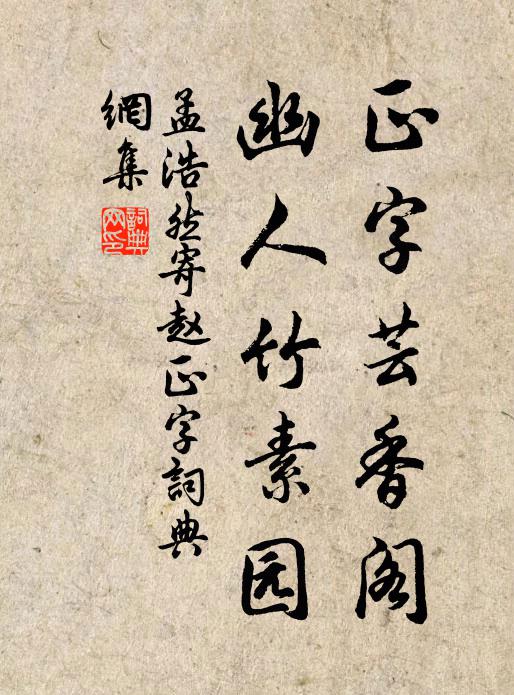 正字芸香阁
幽人竹素园
孟浩然寄赵正字詞典
網集
詞典
网印